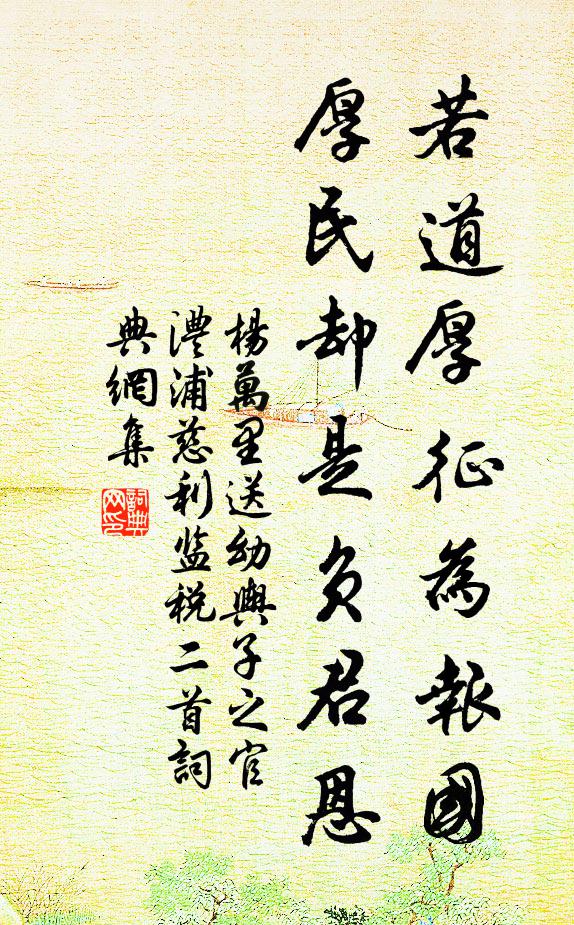 若道厚征為報國
厚民却是負君恩
楊萬里送幼輿子之官
澧浦慈利监税二首詞
典網集
詞典网印